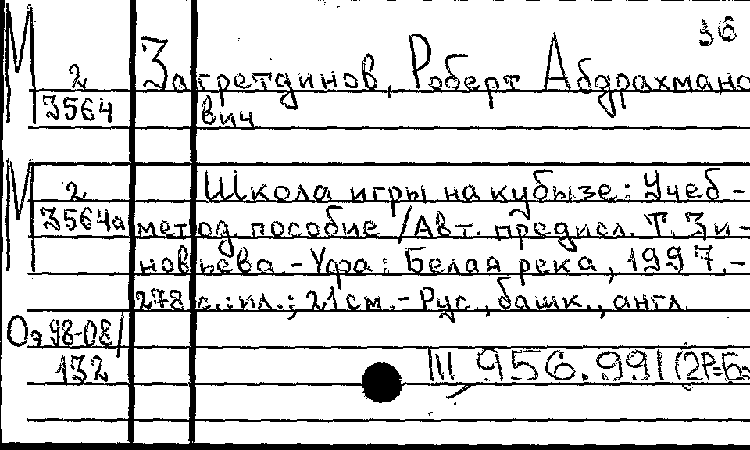 36
М 2 Загретдинов, Роберт Абдрахмано
3564 вич
М 2 Школа игры на кубызе: Учеб-
3564а метод. пособие / Авт. предисл. Т. Зи-
новьева. - Уфа: Белая река, 1997. -
278 с.: ил.; 21 см. - Рус., башк., англ
Оэ 98-08/
132
III 956.991 (2Р=Ба